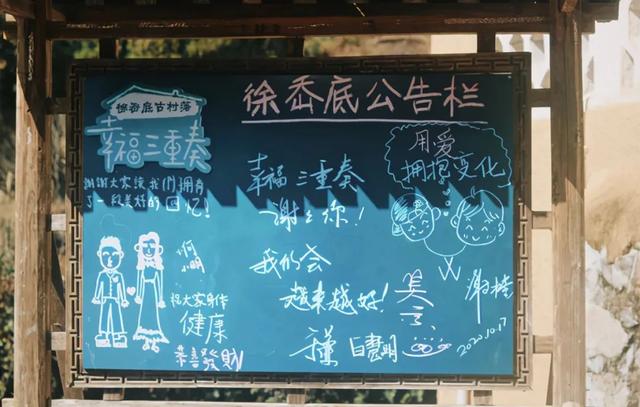 徐岙底公告栏
徐岙底古村落
幸福三重奏
谢谢大家让我们拥有
了一段美好的回忆!
阿
小明
祝大家身体
健康
恭喜發財
幸福三重奏
谢谢你!
我们会
越来越好!
吴
用爱
拥抱变化
2020.10.17